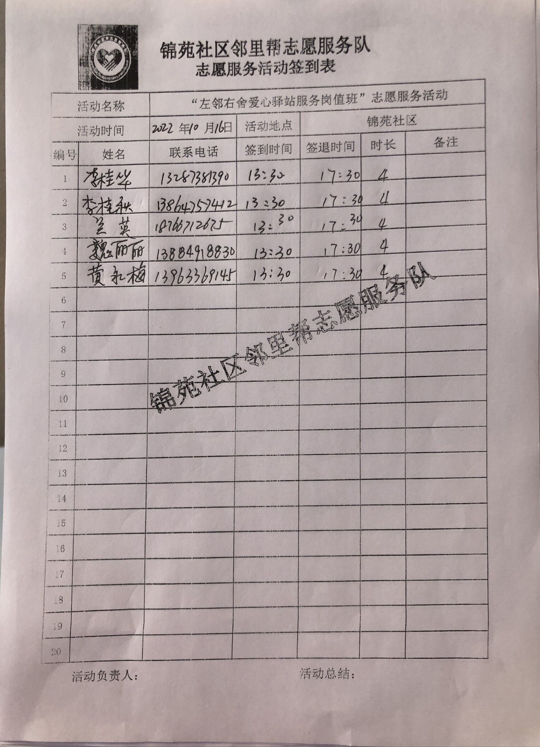 锦苑社区邻里帮志愿服务队
志愿服务活动签到表
活动名称 “左邻右舍爱心驿站服务岗值班”志愿服务活动
活动时间 2022年10月16日 活动地点 锦苑社区
编号 姓名 联系电话 签到时间 签退时间 时长 备注
1 李桂华 13287381390 13:30 17:30 4
2 李桂秋 13864757412 13:30 17:30 4
3 兰英 18766712675 13:30 17:30 4
4 魏丽丽 13884918830 13:30 17:30 4
5 黄永梅 13963369145 13:30 17:30 4
6
7
8
锦苑社区邻里帮志愿服务队
9
10
11
12
13
14
15
16
17
18
19
20
活动负责人: 活动总结: